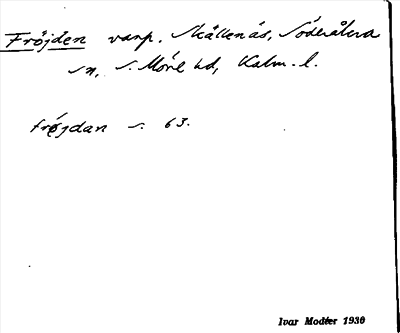 Fröjden varp. Skällenäs, Söderåkra
sn, S. Möre hd, Kalm. l.
frö́jdan s. 63.
Ivar Modéer 1930